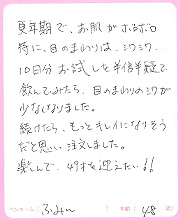 更年期で、お肌がボロボロ
特に、目のまわりは、シワシワ、、
10日分お試しを半信半疑で
飲んでみたら、目のまわりのシワが
少なくなりました。
続けたら、もっとキレイになりそう
だと思い、注文しました。
楽しんで、49才を迎えたい!!
ペンネーム( ふみ〜 ) 年齢( 48 歳)